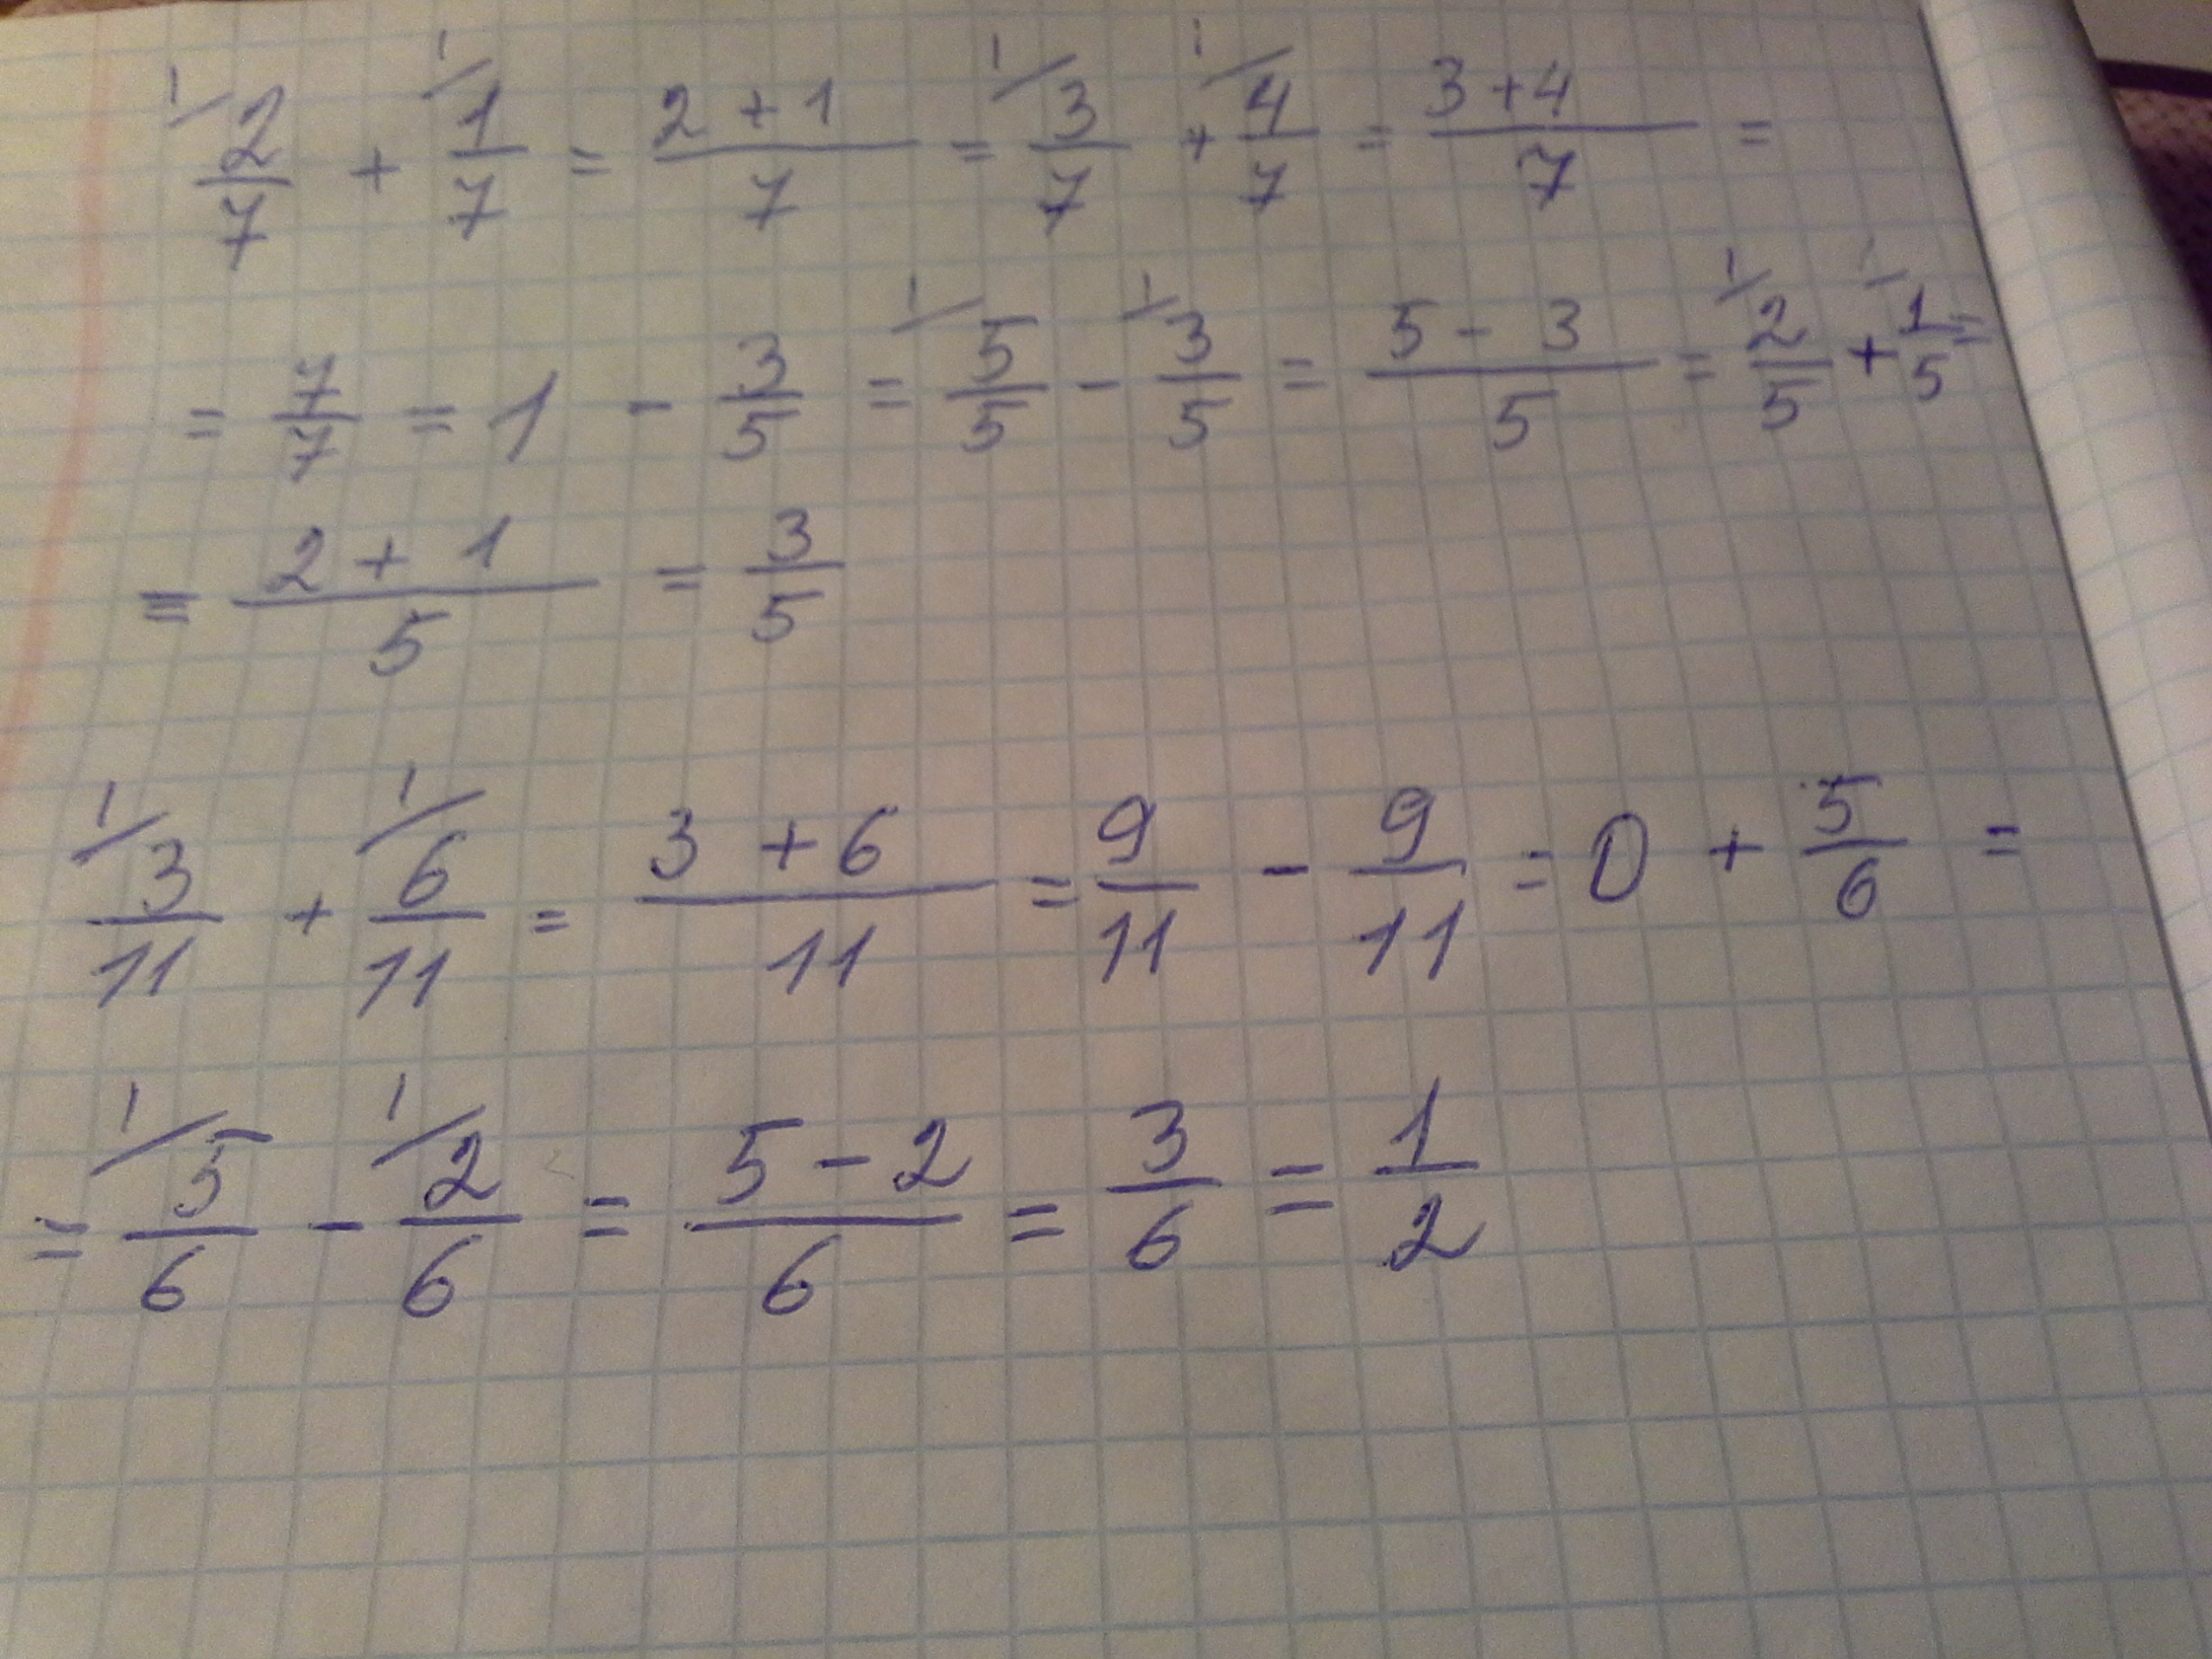 1/ 2/7 + 1/ 1/7 = (2 + 1)/7 = 1/ 3/7 + 1/ 4/7 = (3 + 4)/7 =
= 7/7 = 1 - 3/5 = 1/ 5/5 - 1/ 3/5 = (5 - 3)/5 = 1/ 2/5 + 1/ 1/5 =
= (2 + 1)/5 = 3/5
1/ 3/11 + 1/ 6/11 = (3 + 6)/11 = 9/11 - 9/11 = 0 + 5/6 =
= 1/ 5/6 - 1/ 2/6 = (5 - 2)/6 = 3/6 = 1/2